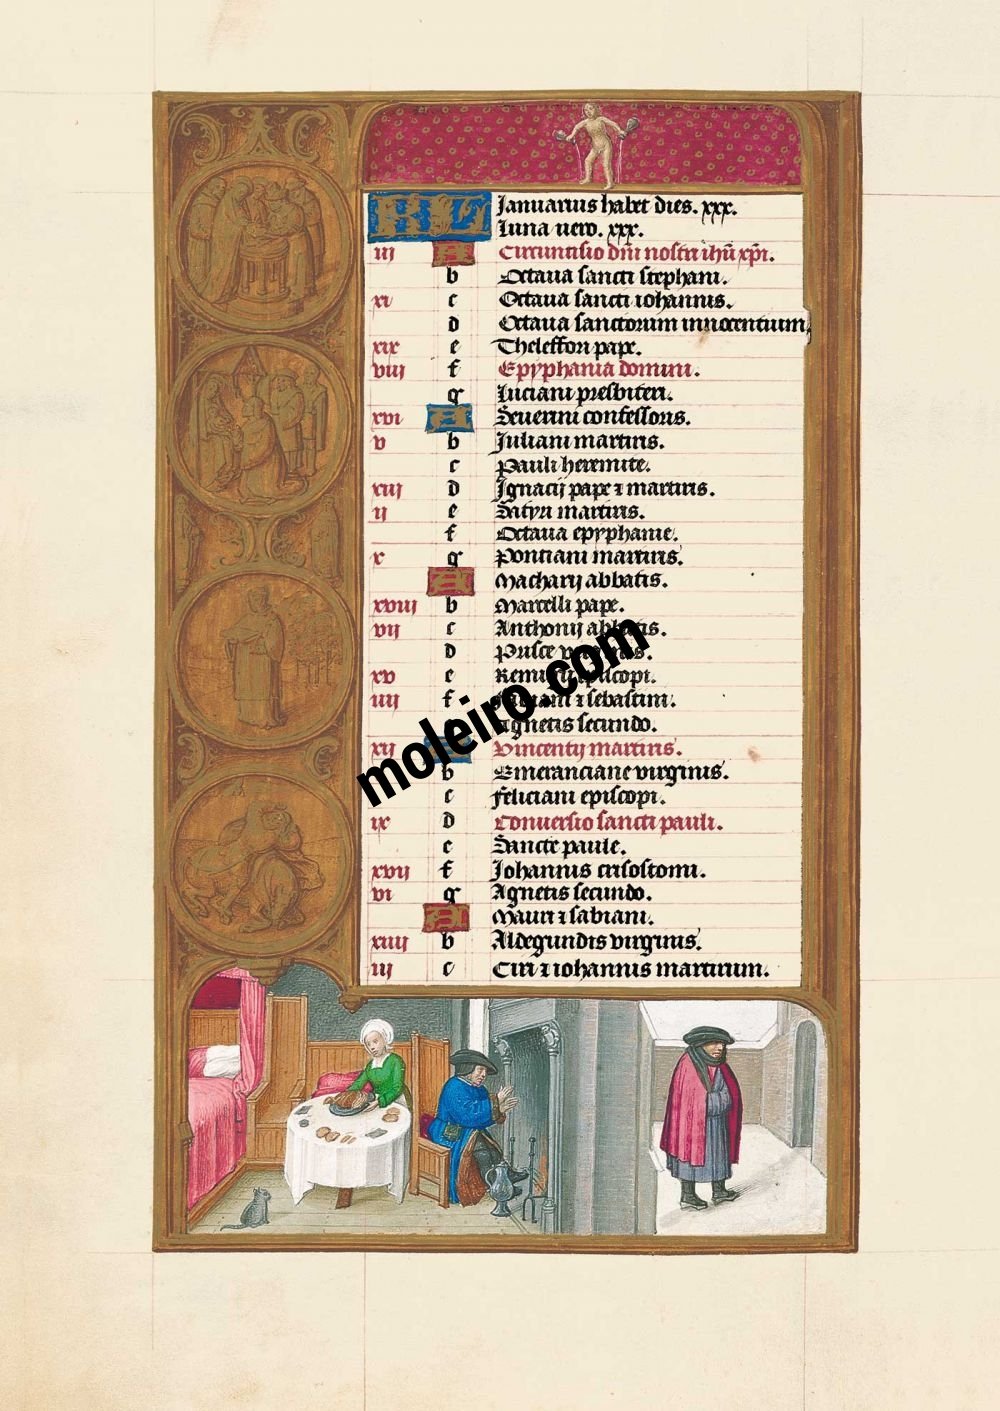 KL Januarius habet dies. xxx.
Luna vero. xxx.
iii A Circuncisio dni nostri ihu xpi.
b Octava sancti stephani.
xi c Octava sancti iohannis.
d Octava sanctorum innocentium
xix e Theleffori pape.
viii f Epyphania domini.
g Luciani presbiteri.
xvi A Severini confessoris.
v b Juliani martiris.
c Pauli heremite.
xiii d Ignacij pape z martiris.
ii e Satyri martiris.
f Octava epyphanie.
x g Ponciani martiris.
A Macharij abbatis.
xviii b Marcelli pape.
vii c Anthonij abbatis.
d Prisce
xv e episcopi.
iiii f z sebastini.
Agnetis secundo.
xii Vincentij martiris.
b Emeranciane virginis.
c Feliciani episcopi.
ix d Conversio sancti pauli.
e Sancte paule.
xvii f Johannis crisostomi.
vi g Agnetis secundo.
A Mauri z sabiani.
xiiii b Aldegundis virginis.
iii c Ciri z iohannis martirum.
moleiro.com